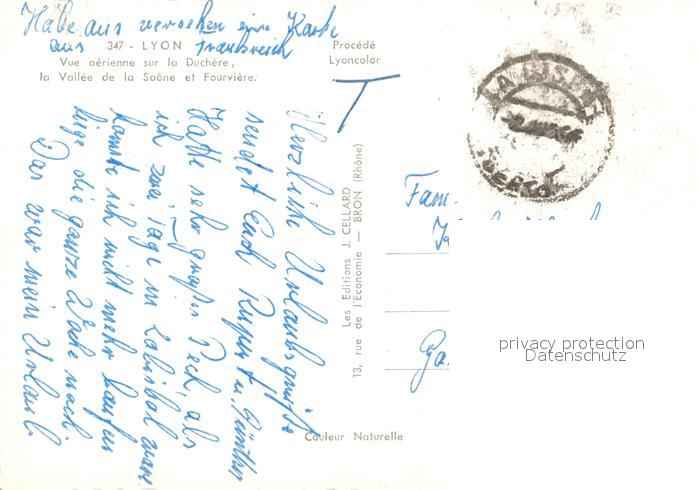 Habe aus versehen eine Karte
aus Frankreich
347 - LYON
Vue aérienne sur la Duchère,
la Vallée de la Saône et Fourvière.
Procédé
Lyoncolor
T
Herzliche Urlaubsgrüße
sendet Euch Rupert u. Günther
Hatte sehr großes Pech, als
ich zwei Tage in Labisbal war
konnte ich nicht mehr laufen
liege die ganze Woche noch.
Das war mein Urlaub.
Les Editions J. CELLARD
13, rue de l'Economie — BRON (Rhône)
Couleur Naturelle
Fam.
privacy protection
Datenschutz